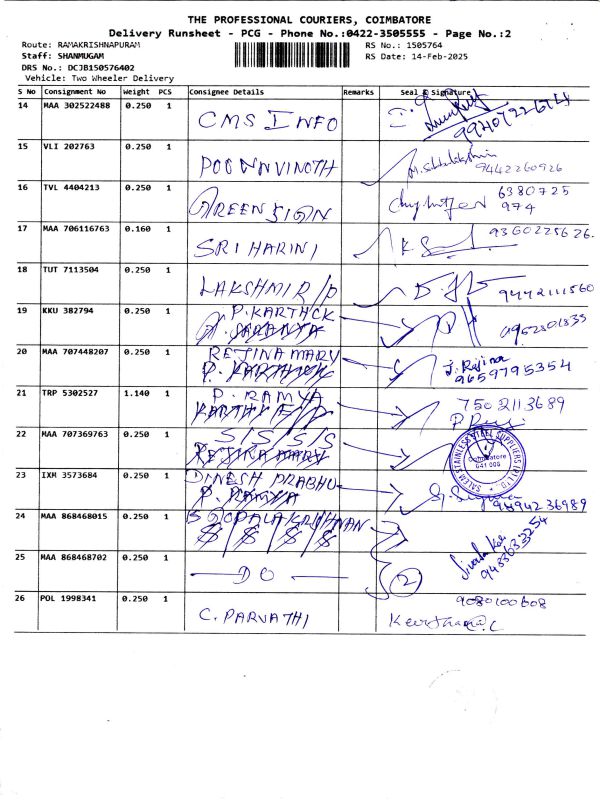 THE PROFESSIONAL COURIERS, COIMBATORE
Delivery Runsheet - PCG - Phone No.:0422-3505555 - Page No.:2
Route: RAMAKRISHNAPURAM
RS No.: 1505764
Staff: SHANMUGAM
RS Date: 14-Feb-2025
DRS No.: DCJB150576402
Vehicle: Two Wheeler Delivery
S No Consignment No Weight PCS Consignee Details Remarks Seal & Signature
14 MAA 302522488 0.250 1 CMS INFO
15 VLI 202763 0.250 1 POONNVINOTH 9442260926
16 TVL 4404213 0.250 1 GREEN SIGN 6380725
974
17 MAA 706116763 0.160 1 SRI HARINI 9360225626.
18 TUT 7113504 0.250 1 LAKSHMI R/P 9442111560
19 KKU 382794 0.250 1 P. KARTHCK
20 MAA 707448207 0.250 1 REJINA MARY J. Rejina
9659795354
21 TRP 5302527 1.140 1 P. RAMYA 7502113689
22 MAA 707369763 0.250 1 SIS/SIS
SALEM STAINLESS STEEL SUPPLIERS (P) LTD
Coimbatore
641 006
23 IXM 3573684 0.250 1 DINESH PRABHU
9494236989
24 MAA 868468015 0.250 1 B GOPALAKRISHNAN
9483633254
25 MAA 868468702 0.250 1 — DO — 2
26 POL 1998341 0.250 1 C. PARVATHI 9080100608